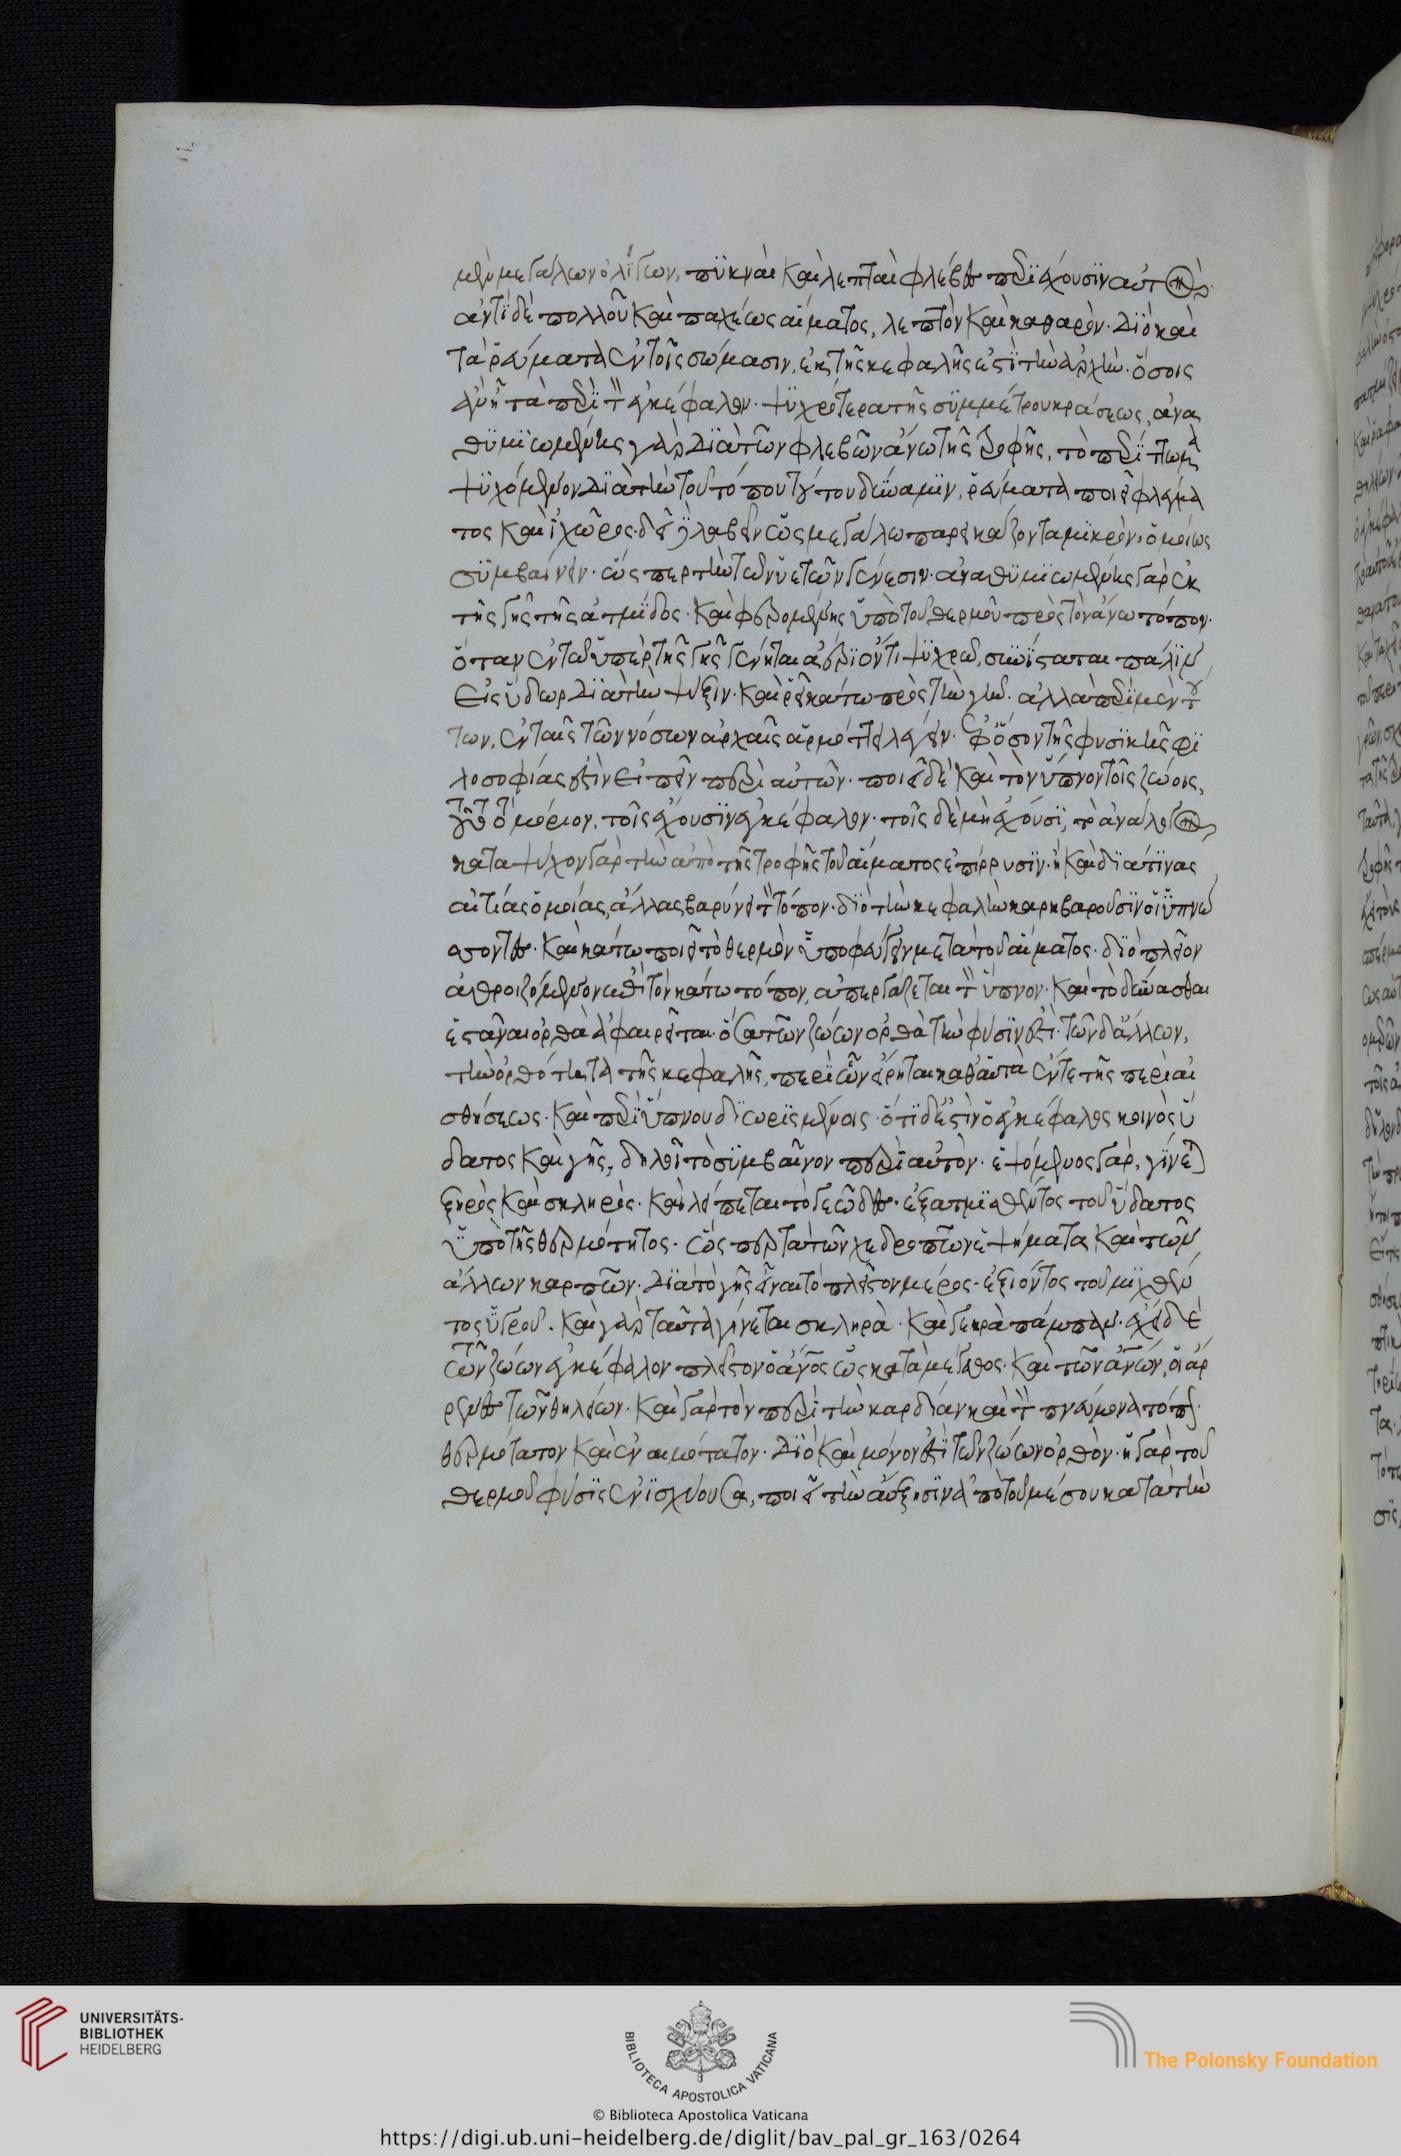 μὲν μεγάλων ὀλίγων, πυκναὶ καὶ λεπταὶ φλέβες περιέχουσιν αὐτὴν·
ἀντὶ δὲ πολλοῦ καὶ παχέως αἵματος, λεπτὸν καὶ καθαρὸν· διὸ καὶ
τὰ ῥεύματα ἐν τοῖς σώμασιν, ἐκ τῆς κεφαλῆς ἐστὶ τὴν ἀρχὴν· ὅσοις
ἂν ἦ τὰ περὶ τὸν ἐγκέφαλον· ψυχρότερα τῆς συμμέτρου κράσεως, ἀνα
θυμιωμένης γὰρ διὰ τῶν φλεβῶν ἄνω τῆς τροφῆς, τὸ περίττωμα
ψυχόμενον διὰ τὴν τοῦ τόπου τούτου δύναμιν, ῥεύματα ποιεῖ φλέγμα
τος καὶ ἰχῶρος· δεῖ δὲ λαβεῖν ὡς μεγάλω παρεικάζοντα μικρὸν, ὁμοίως
συμβαίνειν· ὥσπερ τὴν τῶν ὑετῶν γένεσιν· ἀναθυμιωμένης γὰρ ἐκ
τῆς γῆς τῆς ἀτμίδος· καὶ φερομένης ὑπὸ τοῦ θερμοῦ πρὸς τὸν ἄνω τόπον·
ὅταν ἐν τῶ ὑπὲρ τῆς γῆς γένηται ἀέρι ὄντι ψυχρῶ, συνίσταται πάλιν
εἰς ὕδωρ διὰ τὴν ψύξιν· καὶ ῥεῖ κάτω πρὸς τὴν γῆν· ἀλλὰ περὶ μὲν τού
των, ἐν ταῖς τῶν νόσων ἀρχαῖς ἁρμόττει λέγειν· ἐφ' ὅσον τῆς φυσικῆς φι
λοσοφίας ἐστὶν εἰπεῖν περὶ αὐτῶν· ποιεῖ δὲ καὶ τὸν ὕπνον τοῖς ζώοις,
τοῦτο τὸ μόριον, τοῖς ἔχουσιν ἐγκέφαλον· τοῖς δὲ μὴ ἔχουσι, τὸ ἀνάλογον·
καταψύχον γὰρ τὴν ἀπὸ τῆς τροφῆς τοῦ αἵματος ἐπίρρυσιν· ἢ καὶ διά τινας
αἰτίας ὁμοίας, ἄλλας βαρύνει τὸν τόπον· διὸ τὴν κεφαλὴν καρηβαροῦσιν οἱ ὑπνώ
σοντες· καὶ κάτω ποιεῖ τὸ θερμὸν ὑποφεύγειν μετὰ τοῦ αἵματος· διὸ πλεῖον
ἀθροιζόμενον ἐπὶ τὸν κάτω τόπον, ἀπεργάζεται τὸν ὕπνον· καὶ τὸ δύνασθαι
ἑστᾶναι ὀρθὰ ἀφαιρεῖται· ὅσα τῶν ζώων ὀρθὰ τὴν φύσιν ἐστὶ· τῶν δ' ἄλλων,
τὴν ὀρθότητα τῆς κεφαλῆς, περὶ ὧν εἴρηται καθ' αὑτὰ ἔν τε τοῖς περὶ αἰ
σθήσεως· καὶ περὶ ὕπνου διωρισμένοις· ὅτι δέ ἐστὶν ὁ ἐγκέφαλος κοινὸς ὕ
δατος καὶ γῆς, δηλοῖ τὸ συμβαῖνον περὶ αὐτὸν· ἑψόμενος γὰρ, γίνεται
ξηρὸς καὶ σκληρὸς· καὶ λείπεται τὸ γεῶδες· ἐξατμισθέντος τοῦ ὕδατος
ὑπὸ τῆς θερμότητος· ὥσπερ τὰ τῶν χεδροπῶν ἑψήματα καὶ τῶν
ἄλλων καρπῶν· διὰ τὸ γῆς εἶναι τὸ πλεῖστον μέρος· ἐξιόντος τοῦ μιχθέν
τος ὑγροῦ. καὶ γὰρ ταῦτα γίνεται σκληρὰ· καὶ γεηρὰ πάμπαν· ἔχει δὲ
τῶν ζώων ἐγκέφαλον πλεῖστον ὁ ἄνθρωπος ὡς κατὰ μέγεθος· καὶ τῶν ἀνθρώπων, οἱ ἄρ
ρενες τῶν θηλειῶν· καὶ γὰρ τὸν περὶ τὴν καρδίαν καὶ τὸν πνεύμονα τόπον·
θερμότατον καὶ ἐναιμότατον· διὸ καὶ μόνον ἐστὶ τῶν ζώων ὀρθὸν· ἡ γὰρ τοῦ
θερμοῦ φύσις ἐνισχύουσα, ποιεῖ τὴν αὔξησιν ἀπὸ τοῦ μέσου κατὰ τὴν
UNIVERSITÄTS-
BIBLIOTHEK
HEIDELBERG
BIBLIOTECA APOSTOLICA VATICANA
The Polonsky Foundation
© Biblioteca Apostolica Vaticana
https://digi.ub.uni-heidelberg.de/diglit/bav_pal_gr_163/0264